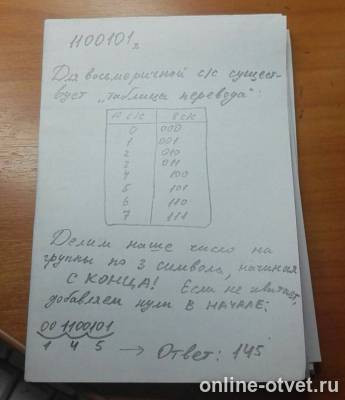 1100101₂
Для восьмиричной с/с сущест-
вует "таблица перевода":
A с/с 8 с/с
0 000
1 001
2 010
3 011
4 100
5 101
6 110
7 111
Делим наше число на
группы по 3 символа, начиная
С КОНЦА! Если не хватает,
добавляем нули В НАЧАЛЕ:
001100101
1 4 5 → Ответ: 145
online-otvet.ru